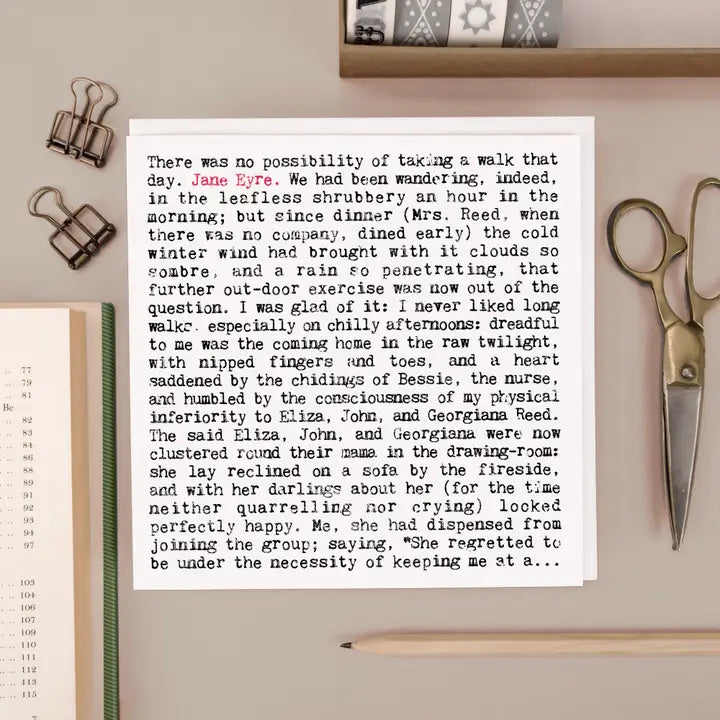 There was no possibility of taking a walk that
day. Jane Eyre. We had been wandering, indeed,
in the leafless shrubbery an hour in the
morning; but since dinner (Mrs. Reed, when
there was no company, dined early) the cold
winter wind had brought with it clouds so
sombre, and a rain so penetrating, that
further out-door exercise was now out of the
question. I was glad of it: I never liked long
walks. especially on chilly afternoons: dreadful
to me was the coming home in the raw twilight,
with nipped fingers and toes, and a heart
saddened by the chidings of Bessie, the nurse,
and humbled by the consciousness of my physical
inferiority to Eliza, John, and Georgiana Reed.
The said Eliza, John, and Georgiana were now
clustered round their mama in the drawing-room:
she lay reclined on a sofa by the fireside,
and with her darlings about her (for the time
neither quarrelling nor crying) looked
perfectly happy. Me, she had dispensed from
joining the group; saying, "She regretted to
be under the necessity of keeping me at a...
.. 77
.. 79
.. 81
Be
.. 82
.. 83
.. 84
.. 86
.. 88
.. 89
.. 91
.. 92
.. 93
.. 94
.. 97
.. 103
.. 104
.. 106
.. 107
.. 109
.. 110
.. 111
.. 112
.. 113
.. 115